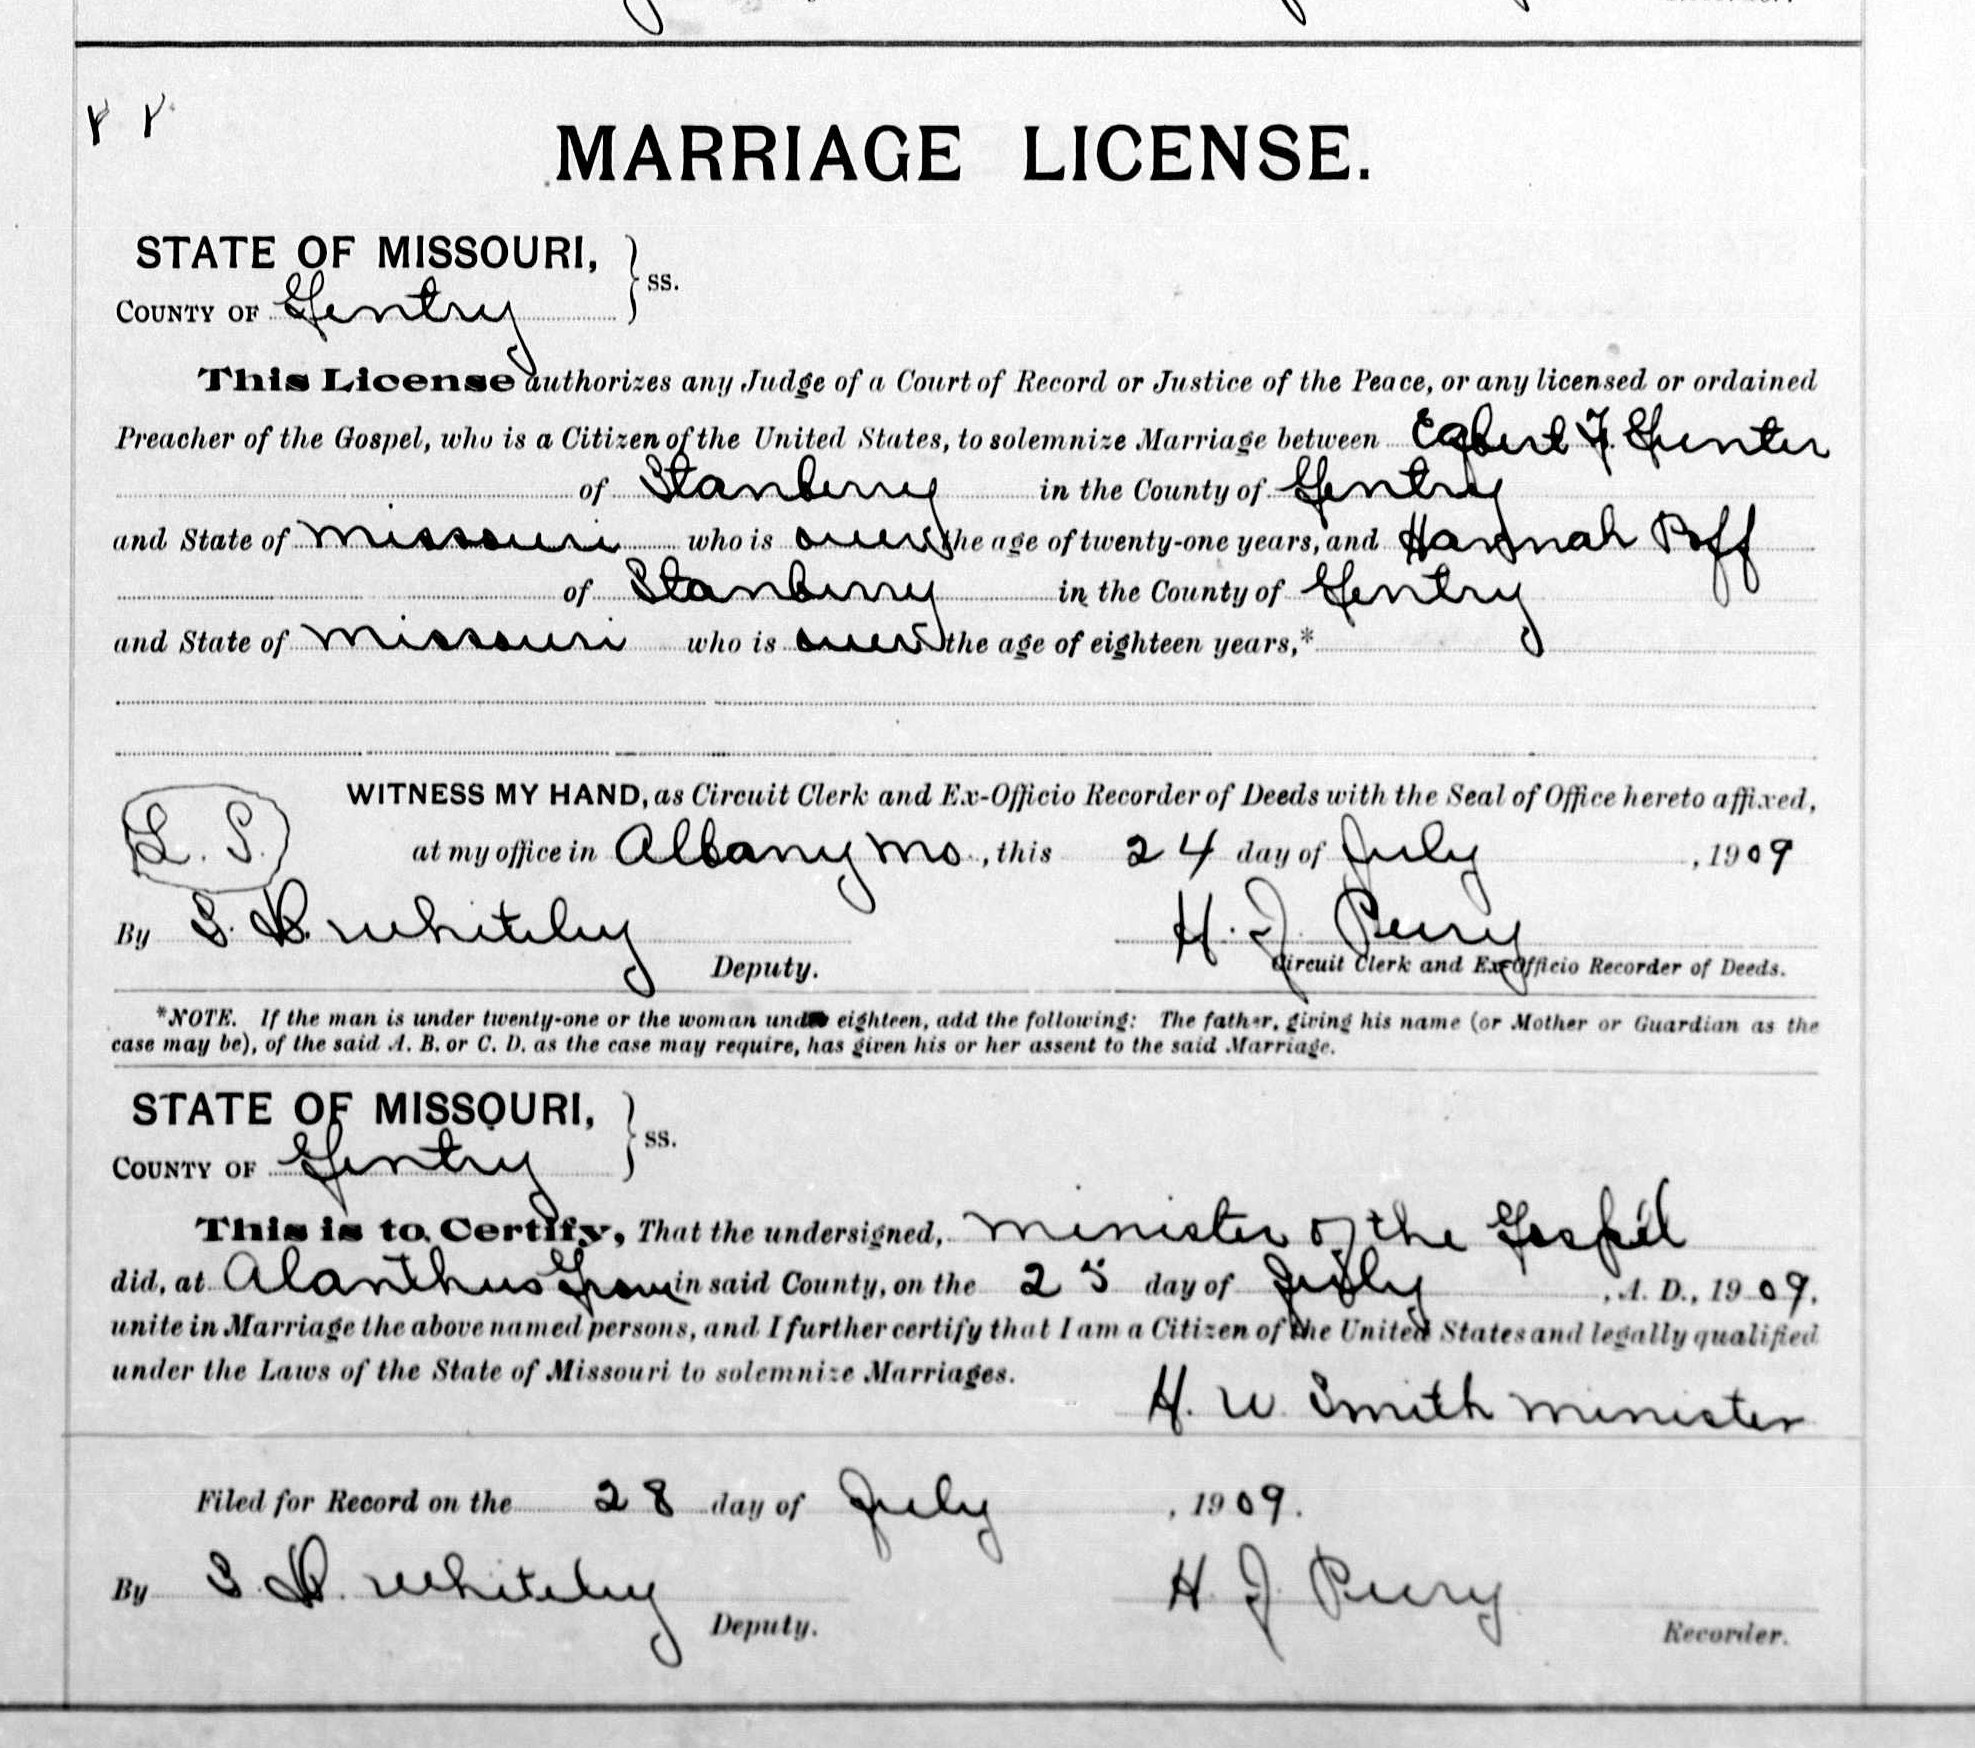 MARRIAGE LICENSE.
STATE OF MISSOURI,
COUNTY OF Gentry } ss.
This License authorizes any Judge of a Court of Record or Justice of the Peace, or any licensed or ordained
Preacher of the Gospel, who is a Citizen of the United States, to solemnize Marriage between Egbert F. Gunter
of Stanberry in the County of Gentry
and State of Missouri who is over the age of twenty-one years, and Hannah Poff
of Stanberry in the County of Gentry
and State of Missouri who is over the age of eighteen years,*
L. S.
WITNESS MY HAND, as Circuit Clerk and Ex-Officio Recorder of Deeds with the Seal of Office hereto affixed,
at my office in Albany Mo., this 24 day of July, 1909
By S. Whiteley H. J. Peery
Deputy. Circuit Clerk and Ex-Officio Recorder of Deeds.
*NOTE. If the man is under twenty-one or the woman under eighteen, add the following: The father, giving his name (or Mother or Guardian as the
case may be), of the said A. B. or C. D. as the case may require, has given his or her assent to the said Marriage.
STATE OF MISSOURI,
COUNTY OF Gentry } ss.
This is to Certify, That the undersigned, Minister of the Gospel
did, at Alanthus Grove in said County, on the 25 day of July, A. D., 1909.
unite in Marriage the above named persons, and I further certify that I am a Citizen of the United States and legally qualified
under the Laws of the State of Missouri to solemnize Marriages.
H. W. Smith Minister
Filed for Record on the 28 day of July, 1909.
By S. Whiteley H. J. Peery
Deputy. Recorder.